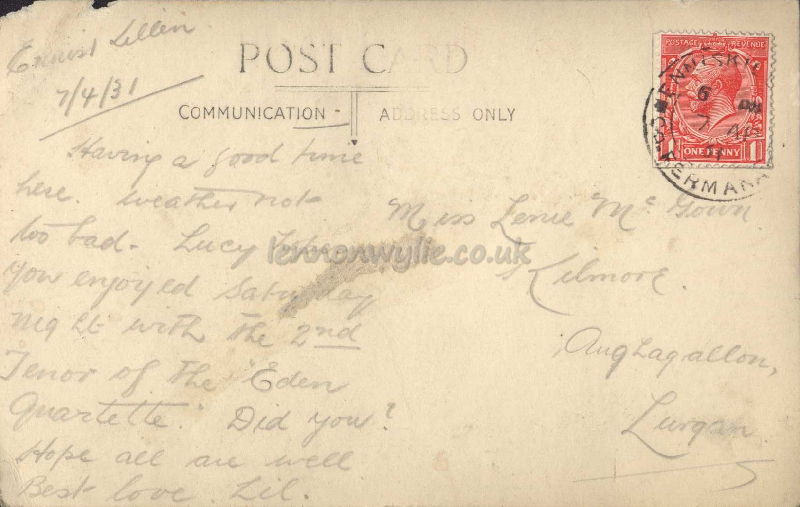 7/4/31
POST CARD
COMMUNICATION - ADDRESS ONLY
POSTAGE REVENUE
ONE PENNY
1 1
Having a good time
here. Weather not
too bad. Lucy
you enjoyed Saturday
night with the 2nd
Tenor of the "Eden
Quartette." Did you?
Hope all are well
Best love. Lil.
Miss Lenie McGown
Kilmore.
Aughagallon,
Lurgan
lennonwylie.co.uk